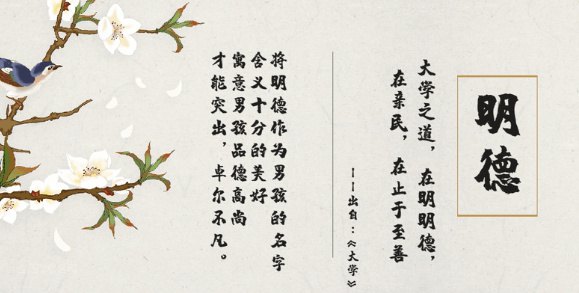 明德
大学之道，在明明德，
在亲民，在止于至善
——出自：《大学》
将明德作为男孩的名字
含义十分的美好
寓意男孩品德高尚
才能突出，卓尔不凡。